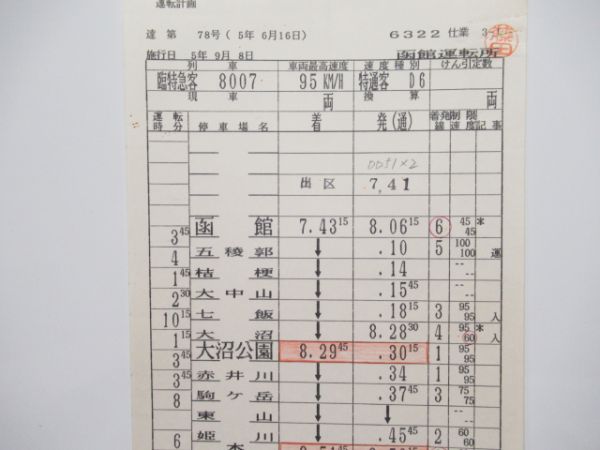 運転計画
達 第 78号 ( 5年 6月16日) 6322 仕業
施行日 5年 9月 8日 函館運転所
列車 車両最高速度 速度種別 けん引定数
臨時急客 8007 95 KM/H 特通客 D6
現車 両 換算 両
運転時分 停車場名 着 発(通) 着発線 制限速度 記事
0051×2
出区 7.41
函館 7.43 15 8.06 15 6 45 45 *
3 45
五稜郭 ↓ .10 5 100 100 運
4
桔梗 ↓ .14 -- --
1 45
大中山 ↓ .15 45 -- --
2 30
七飯 ↓ .18 15 3 95 95 入
10 15
大沼 ↓ 8.28 30 4 95 60 * 入
1 15
大沼公園 8.29 45 .30 15 1 95 95
3 45
赤井川 ↓ .34 1 95 95
3 45
駒ヶ岳 ↓ .37 45 3 75 75
8
東山 ↓ -- --
姫川 ↓ .45 45 2 60 60
6